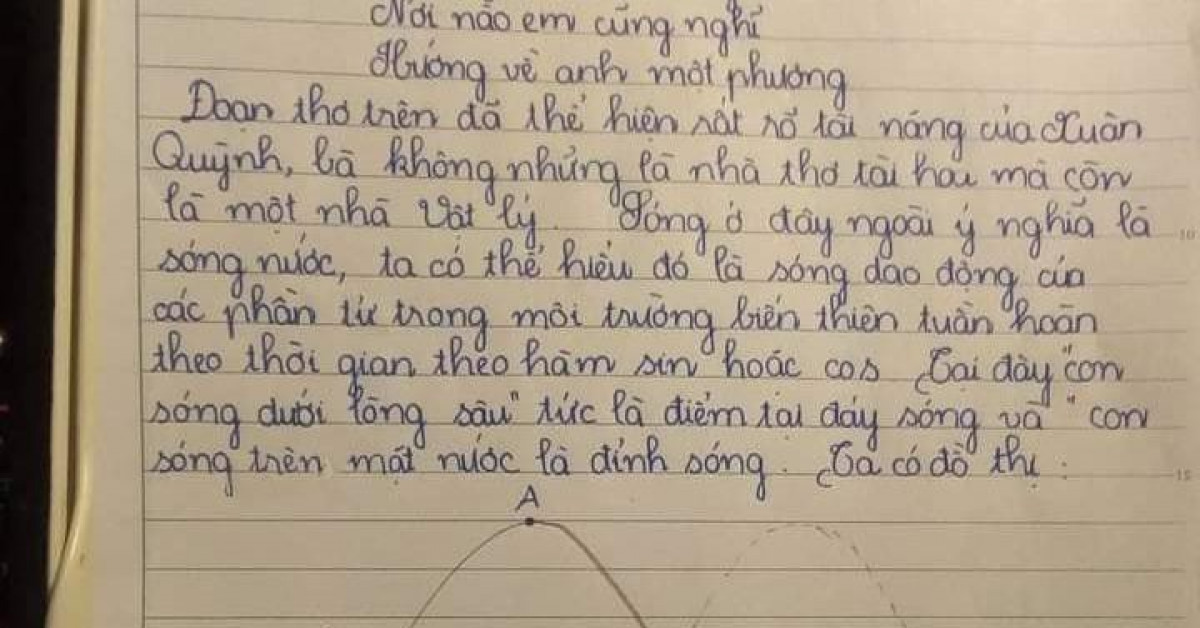 Nơi nào em cũng nghĩ
Hướng về anh một phương
Đoạn thơ trên đã thể hiện rất rõ tài năng của Xuân
Quỳnh, bà không những là nhà thơ tài hoa mà còn
là một nhà Vật lý. Sóng ở đây ngoài ý nghĩa là
sóng nước, ta có thể hiểu đó là sóng dao động của
các phần tử trong môi trường biến thiên tuần hoàn
theo thời gian theo hàm sin hoặc cos Tại đây "con
sóng dưới lòng sâu" tức là điểm tại đáy sóng và "con
sóng trên mặt nước là đỉnh sóng. Ta có đồ thị:
A
10
15